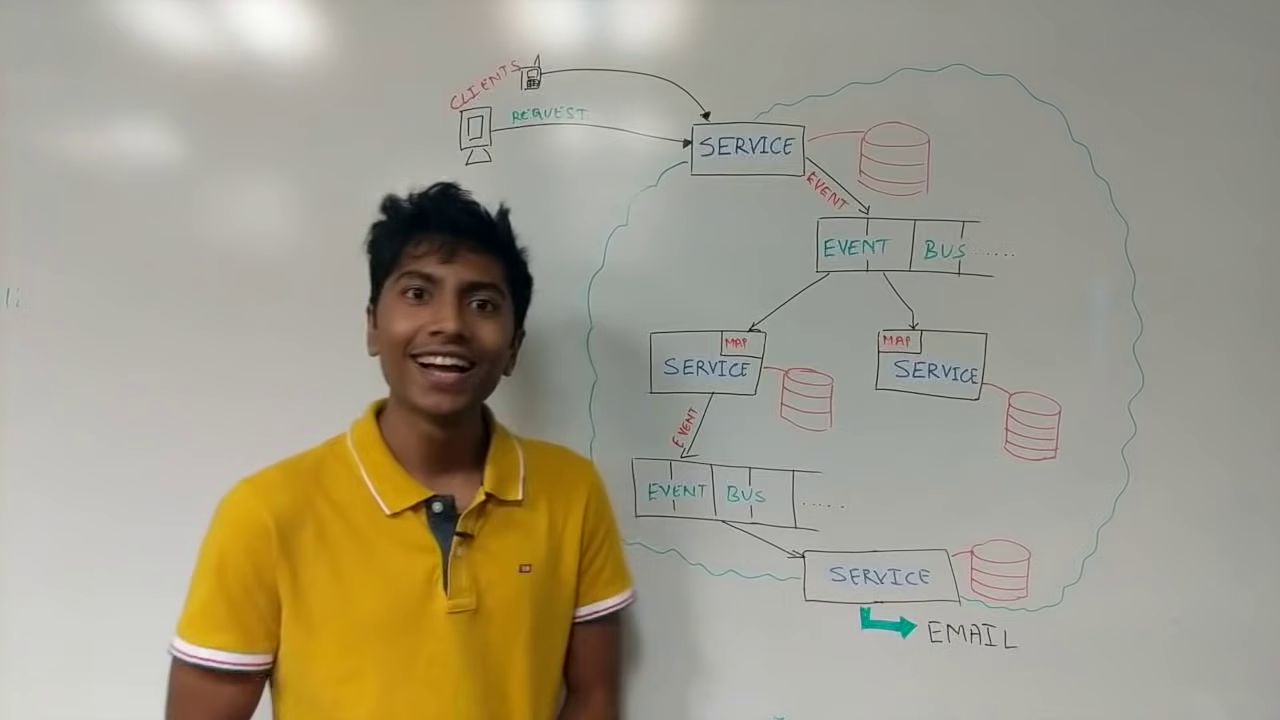 CLIENTS
REQUEST
SERVICE
EVENT
EVENT BUS ......
MAP
SERVICE
MAP
SERVICE
EVENT
EVENT BUS .....
SERVICE
EMAIL